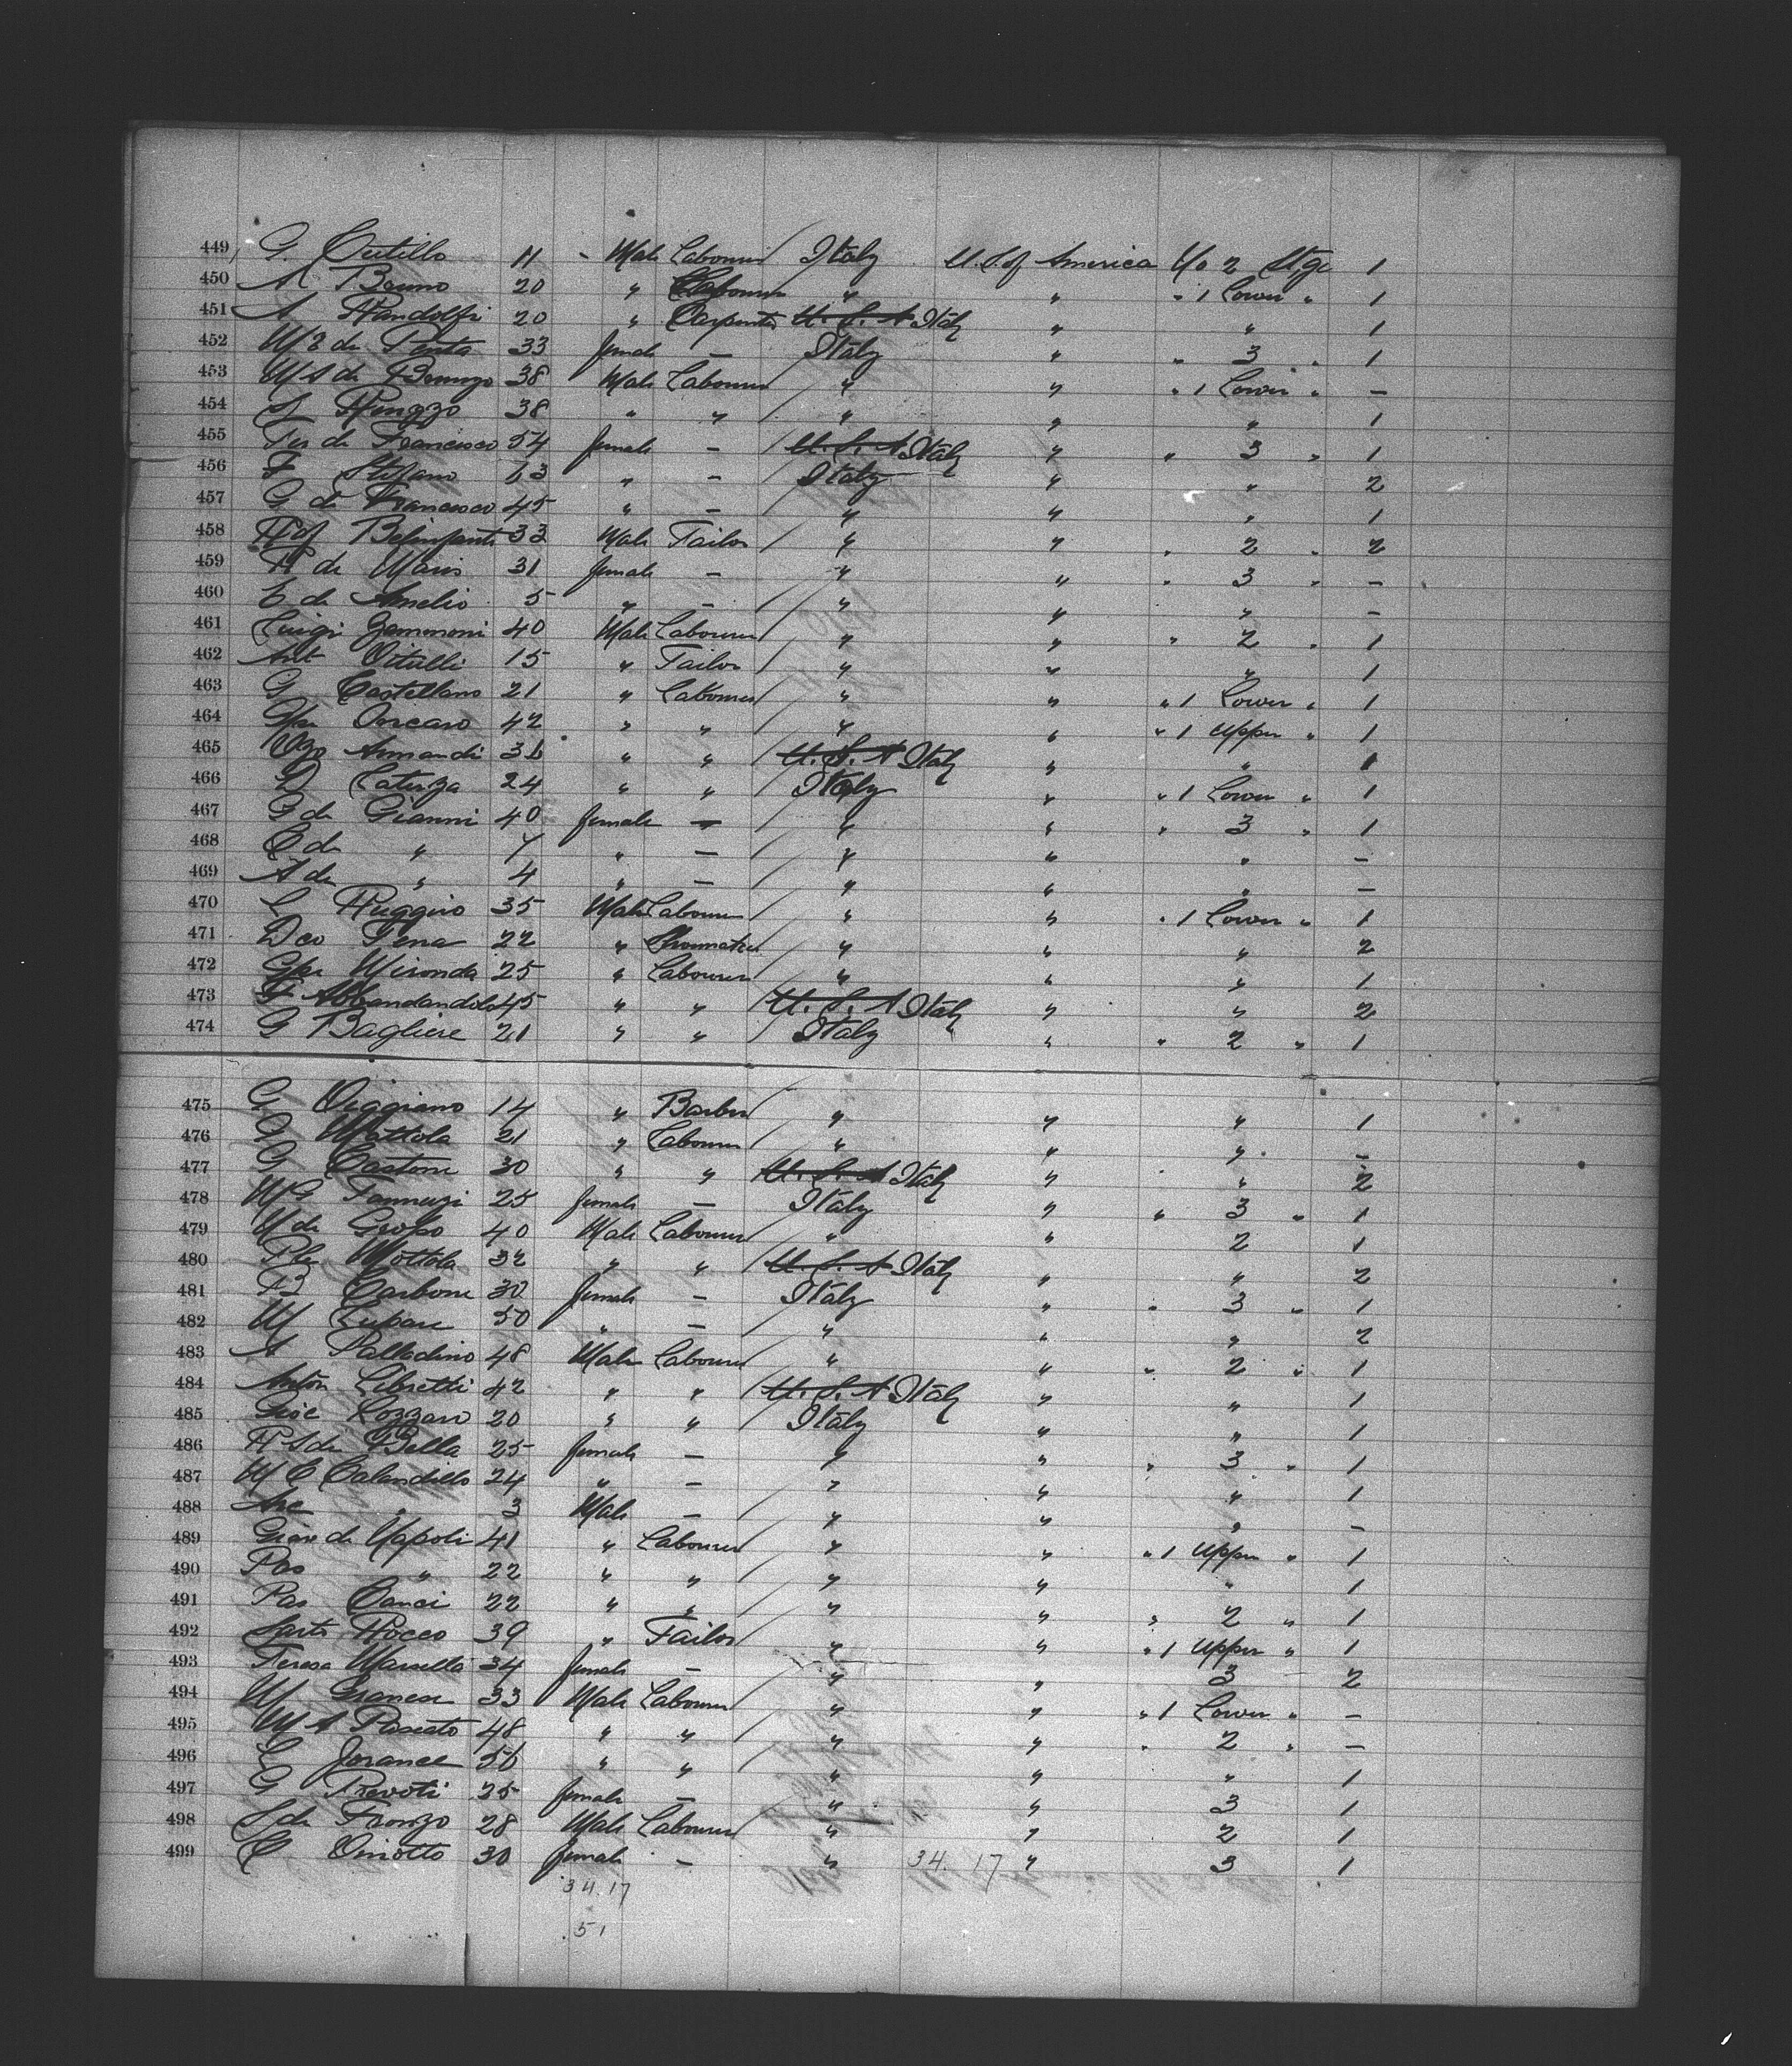 449 G. Cutillo 11 - Male Labourer Italy U.S. of America No 2 Stge 1
450 A Bruno 20 " Labourer " " " 1 Lower " 1
451 A Randolfi 20 " Carpenter U.S.A Italy " " 1
452 M di Penta 33 female — Italy " " 3 " 1
453 38 Male Labourer " " " 1 Lower " —
454 38 " " " " " 1
455 Ter di Francesco 54 female — U.S.A Italy " " 3 " 1
456 F Stefano 63 " — Italy " " 2
457 G di Francesco 45 " — " " " 1
458 Belinfanti 33 Male Tailor " " " 2 " 2
459 di Maris 31 female — " " " 3 " —
460 E di Amelio 5 " — " " " —
461 Luigi Zammoni 40 Male Labourer " " " 2 " 1
462 Ant Vitulli 15 " Tailor " " " 1
463 G Castellano 21 " Labourer " " " 1 Lower " 1
464 Gpe Corcaro 42 " " " " " 1 Upper " 1
465 Vzo Armandi 36 " " U.S.A Italy " " 1
466 D Laterza 24 " " Italy " " 1 Lower " 1
467 G di Gianni 40 female — " " " 3 " 1
468 C di " 7 " — " " " —
469 A di " 4 " — " " " —
470 L Ruggiro 35 Male Labourer " " " 1 Lower " 1
471 Dco Pena 22 " Shoemaker " " " 2
472 Gpe Mironda 25 " Labourer " " " 1
473 F Abbandandolo 45 " " U.S.A Italy " " 2
474 G Bagliere 21 " " Italy " " 2 " 1
475 G Viggiano 14 " Barber " " " 1
476 G Mattola 21 " Labourer " " " —
477 G Castone 30 " " U.S.A Italy " " 2
478 M G Fannuzi 25 female — Italy " " 3 " 1
479 M di Grosso 40 Male Labourer " " 2 1
480 Mottola 32 " " U.S.A Italy " " 2
481 Carbone 30 female — Italy " " 3 " 1
482 M Lupare 50 " — " " " 2
483 A Palladino 48 Male Labourer " " " 2 " 1
484 Anton Libretti 42 " " U.S.A Italy " " 1
485 Gioe Lozzaro 20 " " Italy " " 1
486 di Bella 25 female — " " " 3 " 1
487 M C Calandrillo 24 " — " " " 1
488 " 3 Male — " " " —
489 Giov di Napoli 41 " Labourer " " " 1 Upper " 1
490 Pas " 22 " " " " " 1
491 Pas Canci 22 " " " " " 2 " 1
492 Sarto Rocco 39 " Tailor " " " 1 Upper " 1
493 Teresa Marsella 34 female — " " 3 2
494 M Granese 33 Male Labourer " " " 1 Lower " —
495 M A Piscato 48 " " " " " 2 " —
496 L Jorance 56 " " " " " 1
497 G Prevoti 25 female — " " 3 1
498 S di Fronzo 28 Male Labourer " " 2 1
499 C Viriotto 30 female — " 34. 17 " 3 1
34.17
51